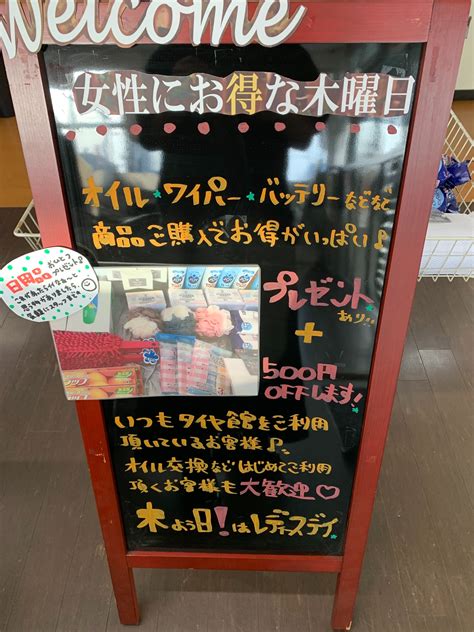 Welcome
女性にお得な木曜日
オイル★ワイパー★バッテリーなどなど
商品ご購入でお得がいっぱい♪
日用品おひとつ
プレゼント♪
プレゼント
あり!!
+
500円
OFFします!
いつもタイヤ館をご利用
頂いているお客様♪
オイル交換などはじめてご利用
頂くお客様も大歓迎♡
木よう日!はレディースデイ